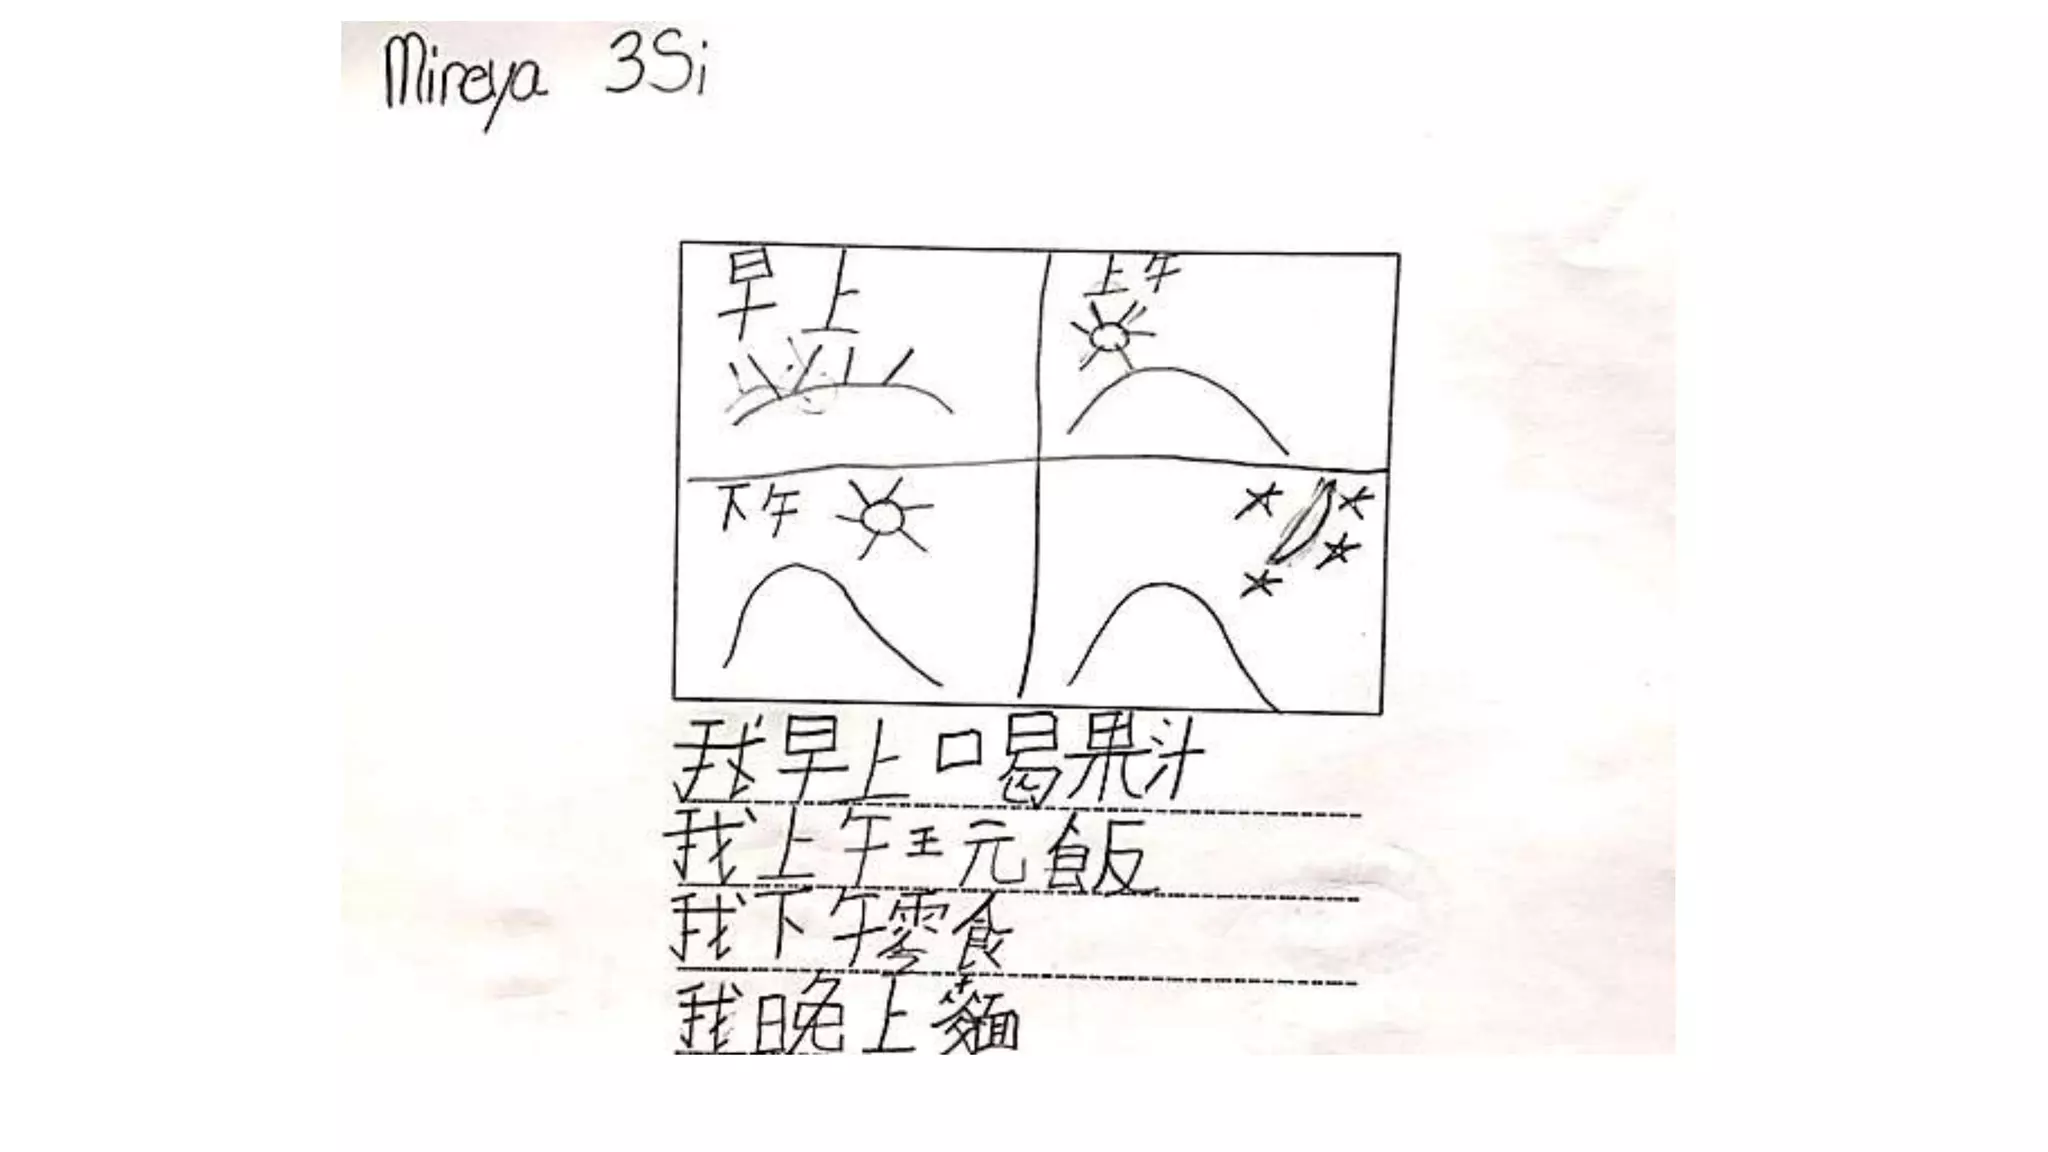 Mireya 3Si
早上
上午
下午
我早上口喝果汁
我上午王元飯
我下午零食
我晚上麵